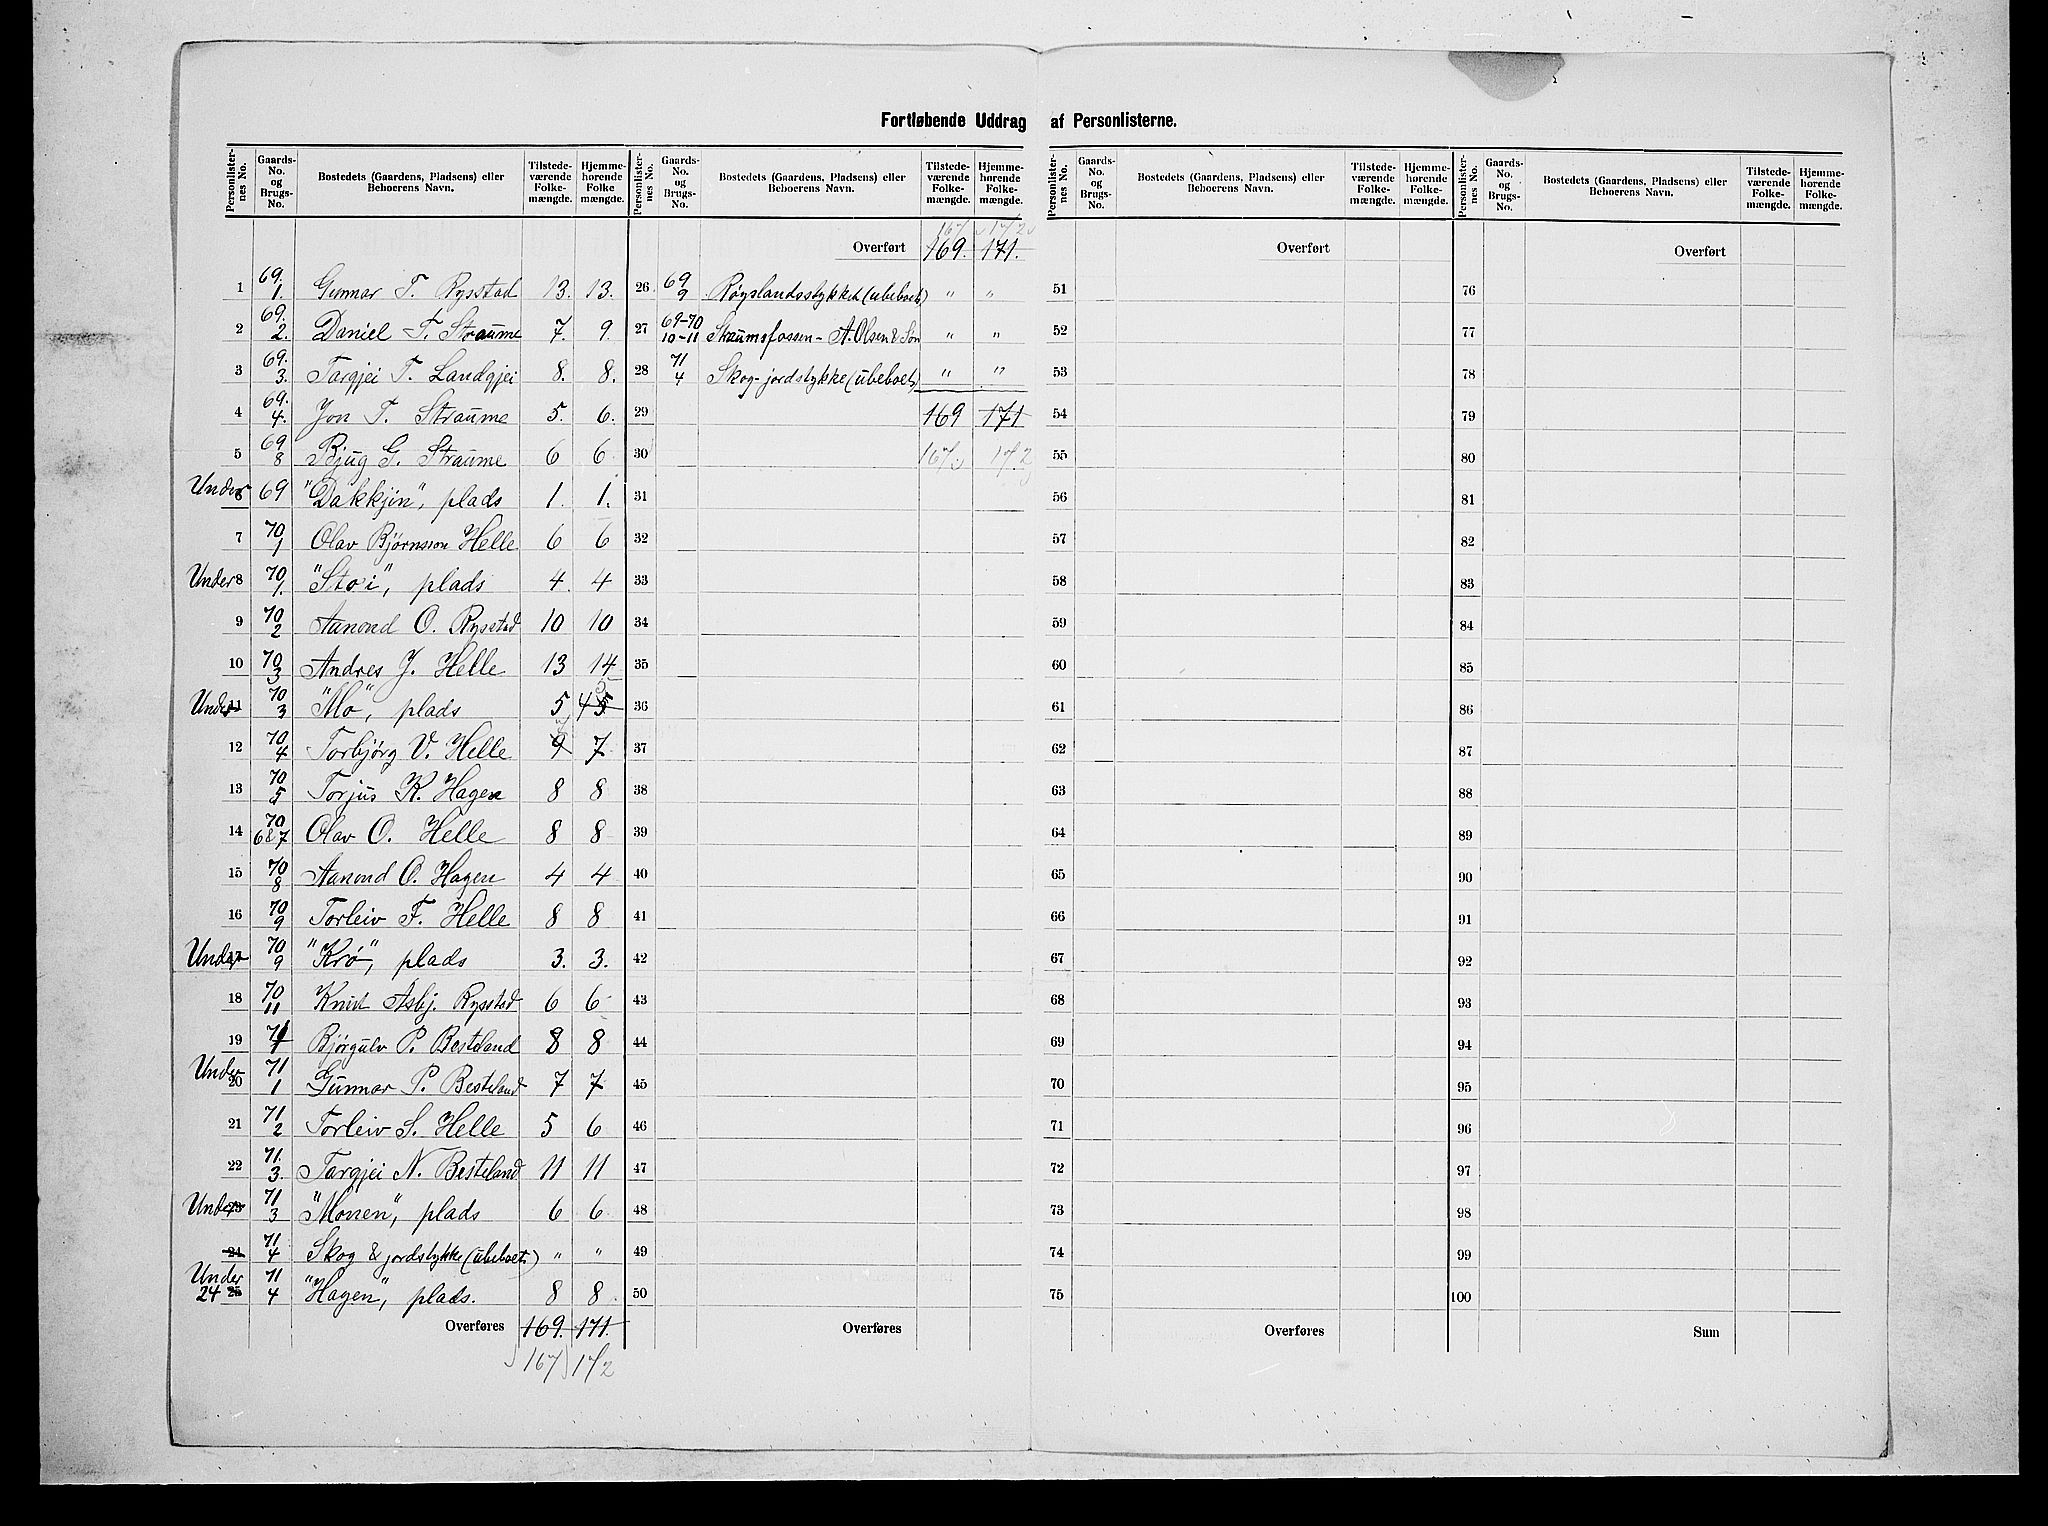 Fortløbende Uddrag af Personlisterne.
Personlister-nes No. Gaards-No. og Brugs-No. Bostedets (Gaardens, Pladsens) eller Beboerens Navn. Tilstede-værende Folke-mængde. Hjemme-hørende Folke mængde. Personlister-nes No. Gaards-No. og Brugs-No. Bostedets (Gaardens, Pladsens) eller Beboerens Navn. Tilstede-værende Folke-mængde. Hjemme-hørende Folke-mængde. Personlister-nes No. Gaards-No. og Brugs-No. Bostedets (Gaardens, Pladsens) eller Beboerens Navn. Tilstede-værende Folke-mængde. Hjemme-hørende Folke-mængde. Personlister-nes No. Gaards-No. og Brugs-No. Bostedets (Gaardens, Pladsens) eller Beboerens Navn. Tilstede-værende Folke-mængde. Hjemme-hørende Folke-mængde.
167 172
Overført 169. 171. Overført Overført
1 69. 1. Gunnar T. Rysstad 13. 13. 26 69 9 Røyslandsstykket (ubeboet) " " 51 76
2 69. 2. Daniel T. Straume 7. 9. 27 69-70 10-11 Straumsfossen - A. Olsen & Søn " " 52 77
3 69. 3. Targjei T. Landgjei 8. 8. 28 71 4 Skog-jordstykke (ubeboet) " " 53 78
4 69. 4. Jon T. Straume 5. 6. 29 169 171 54 79
5 69 8 Bjug G. Straume 6 6 30 167 172 55 80
Under 6 69 "Dakkjin", plads 1. 1. 31 56 81
7 70 1 Olav Bjørnsson Helle 6 6 32 57 82
Under 8 70 1. "Stoi", plads 4. 4 33 58 83
9 70 2 Aanond O. Rysstad 10 10 34 59 84
10 70 3 Andres J. Helle 13 14 35 60 85
Under 11 70 3 "Mo", plads 5 4 5 5 36 61 86
12 70 4 Torbjørg V. Helle 9 7 37 62 87
13 70 5 Torjus K. Hagen 8 8 38 63 88
14 70 6&7 Olav O. Helle 8 8 39 64 89
15 70 8 Aanond O. Hagen 4 4 40 65 90
16 70 9 Torleiv F. Helle 8 8 41 66 91
Under 17 70 9 "Krø", plads 3. 3. 42 67 92
18 70 11 Knut Asbj. Rysstad 6 6 43 68 93
19 71 1 Bjørgulv P. Besteland 8 8 44 69 94
Under 20 71 1 Gunnar P. Besteland 7 7 45 70 95
21 71 2 Torleiv S. Helle 5 6 46 71 96
22 71. 3. Targjei N. Besteland 11 11 47 72 97
Under 23 71 3 "Monen", plads 6 6 48 73 98
24 71 4 Skog & jordstykke (ubeboet) " " 49 74 99
Under 24 25 71 4 "Hagen", plads. 8 8 50 75 100
Overføres 169. 171. Overføres Overføres Sum
167 172